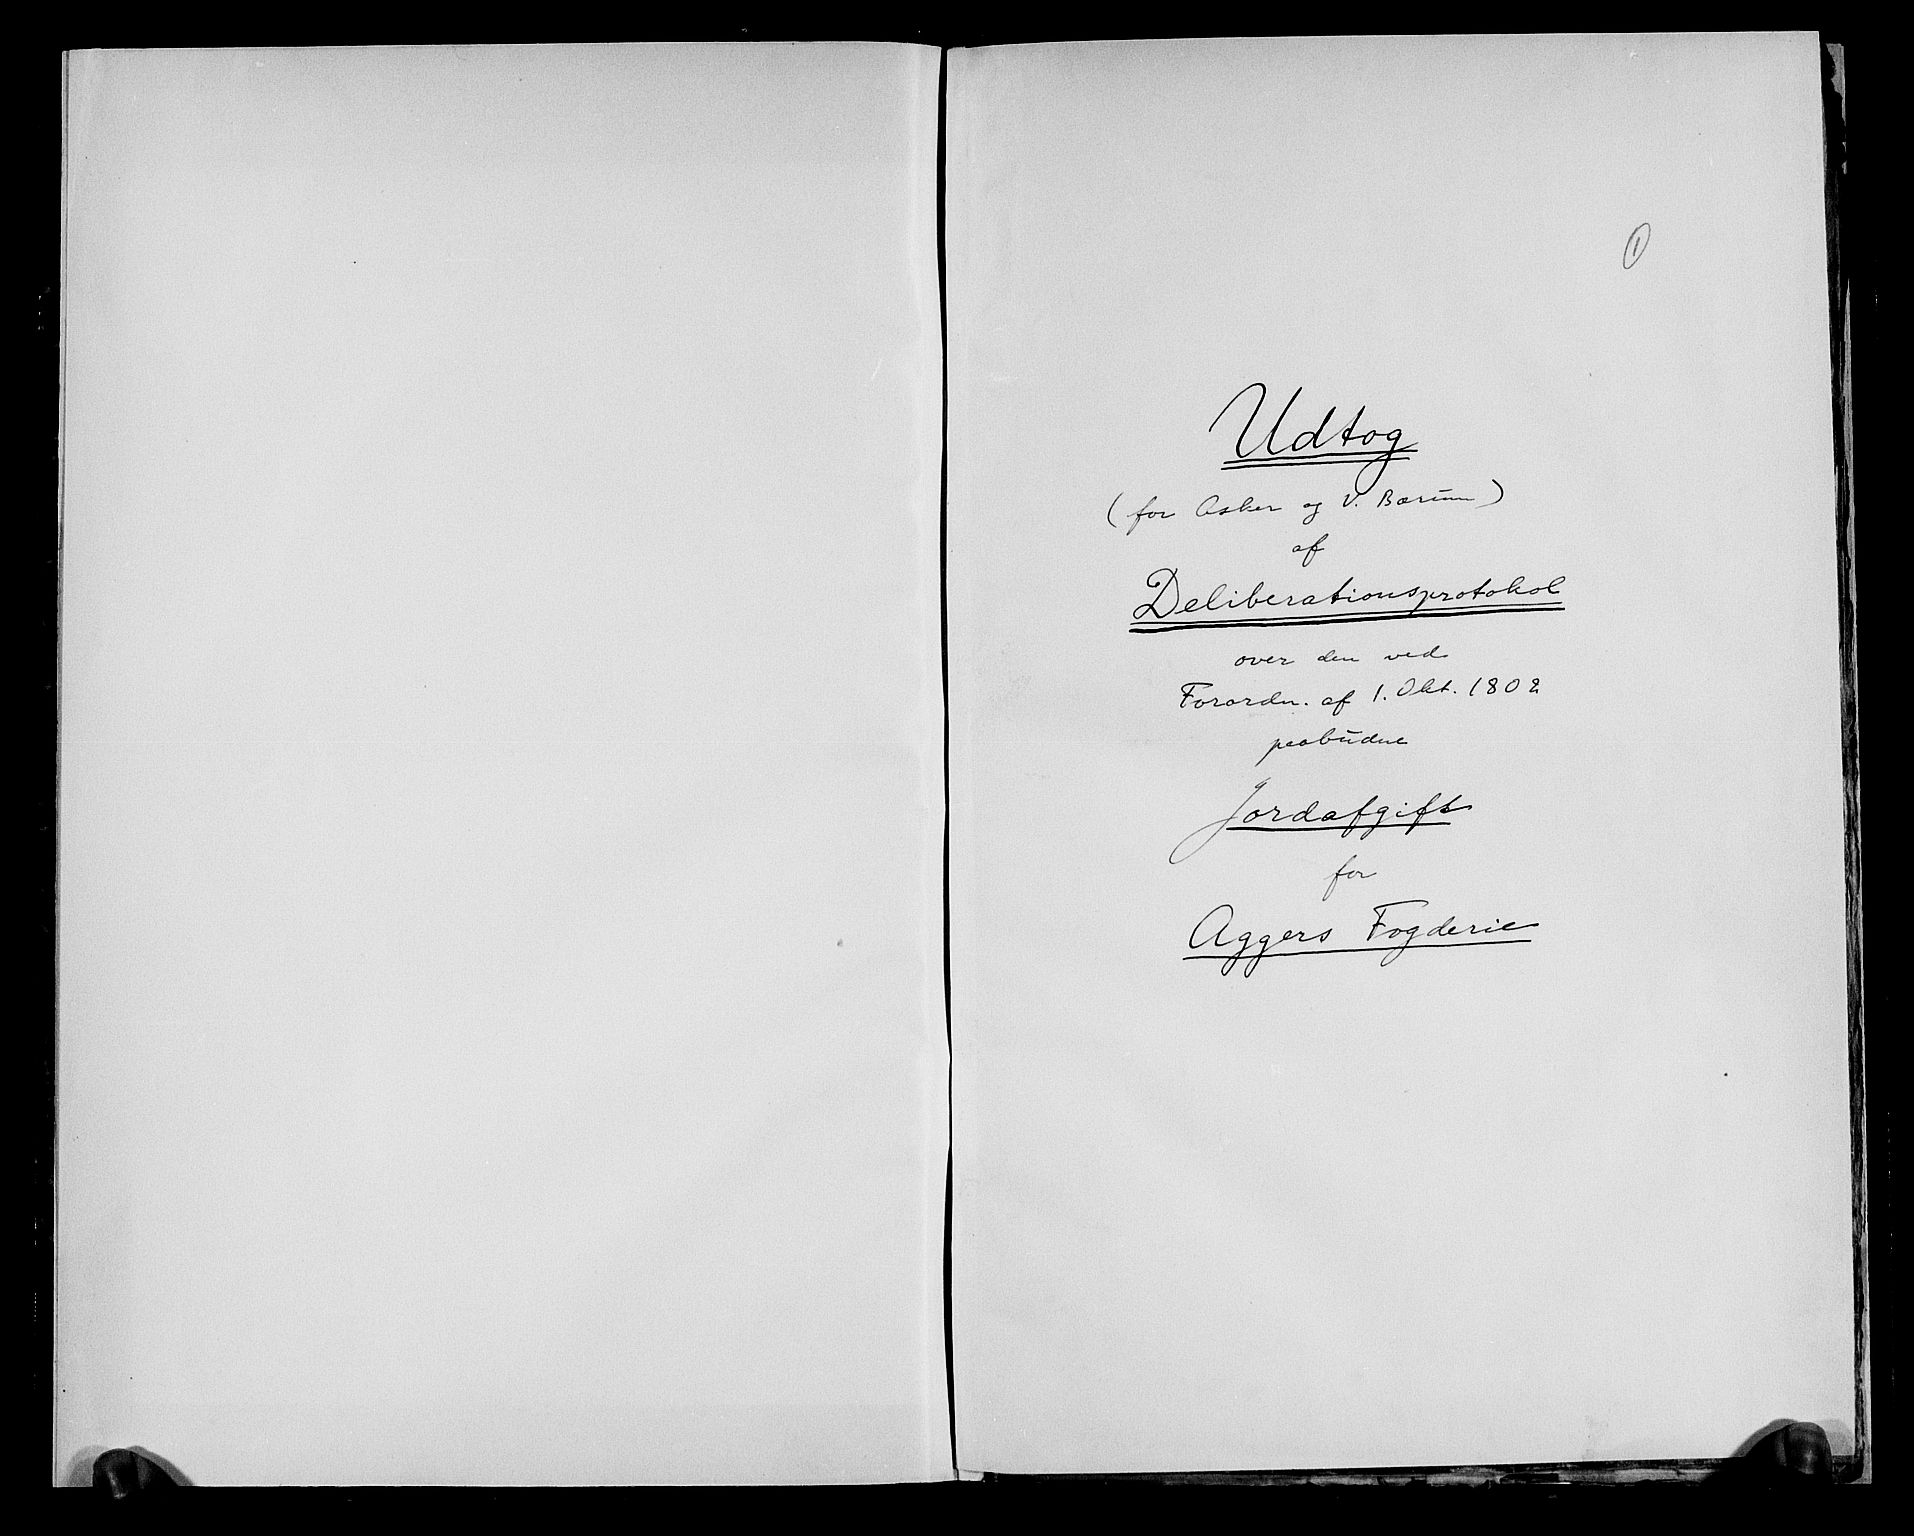 1
Udtog
(for Asker og V. Bærum)
af
Deliberationsprotokol
over den ved
Forordn. af 1. Okt. 1802
paabudne
Jordafgift
for
Aggers Fogderie